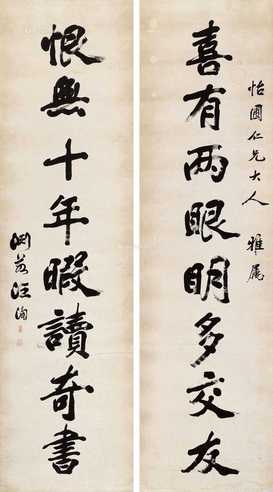 怡園仁兄大人 雅屬
喜有两眼明多交友
恨無十年暇讀奇書
汪洵